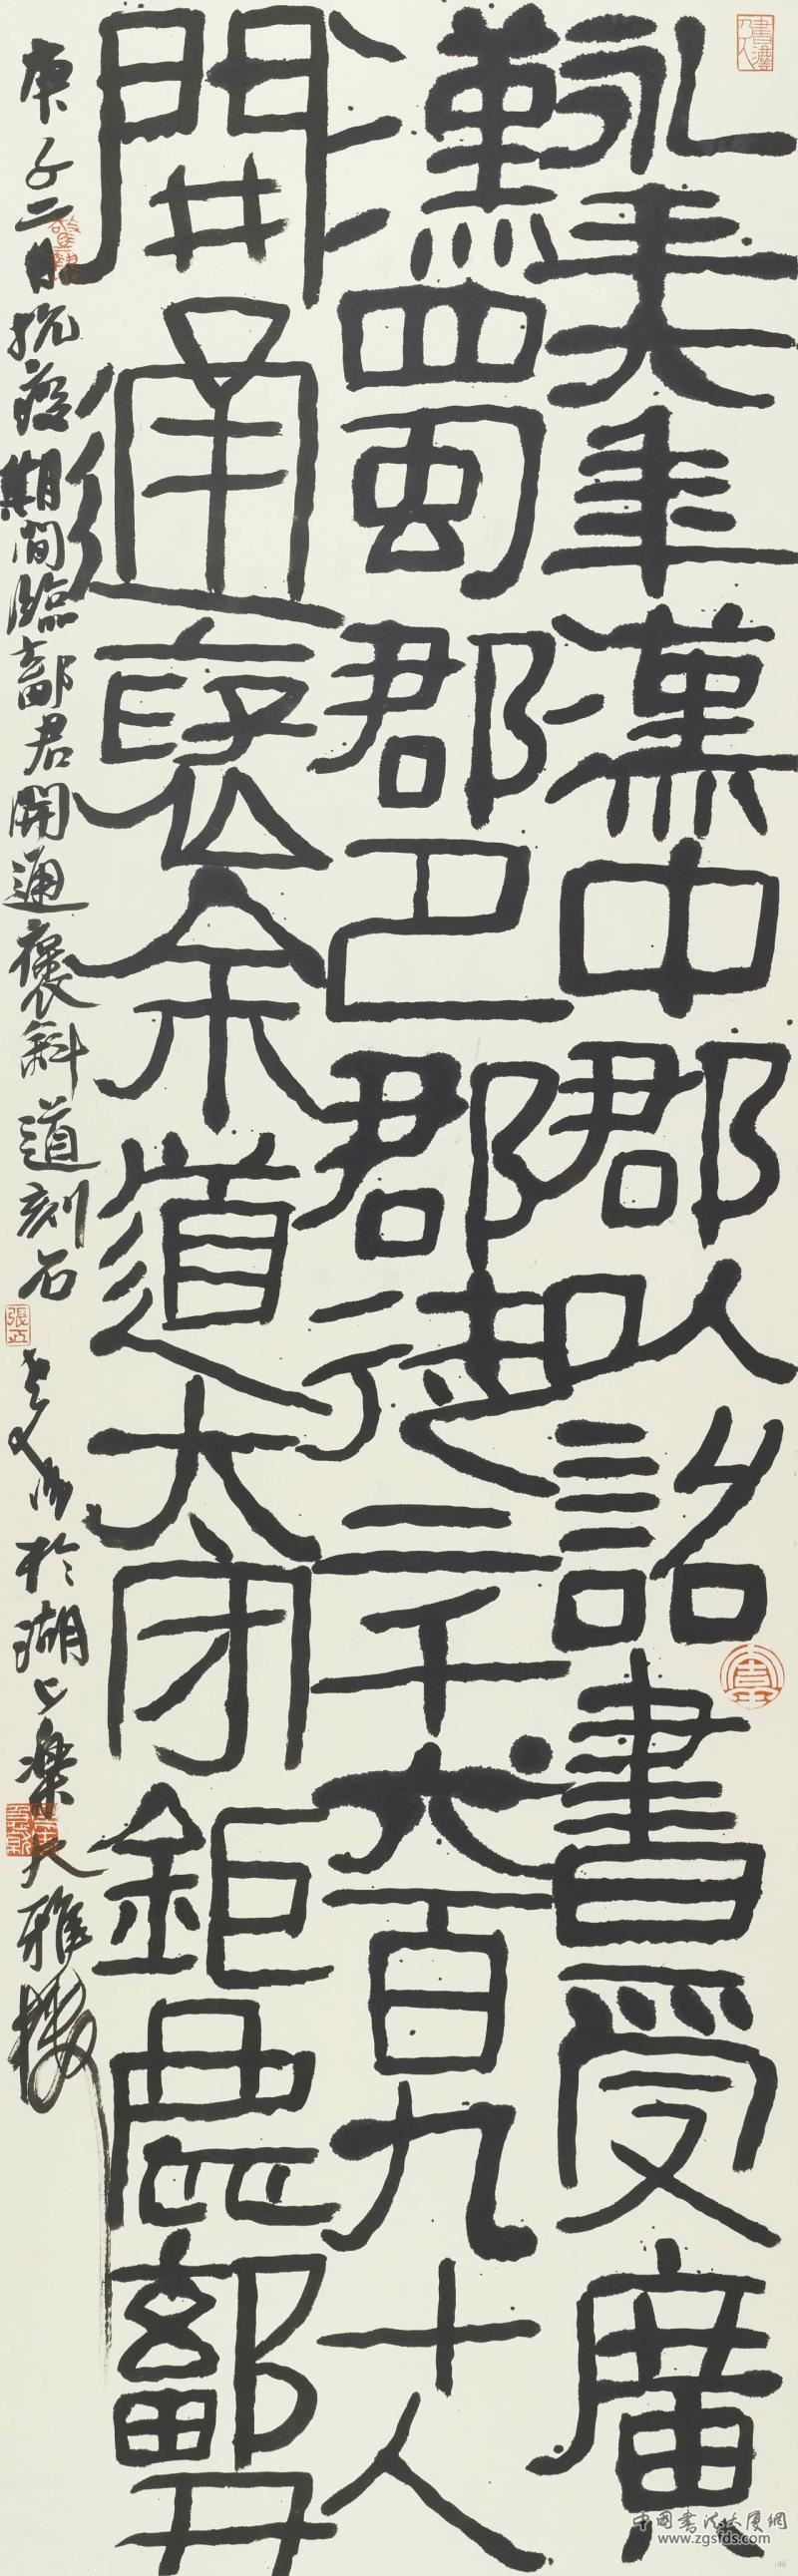 永平六年漢中郡以詔書受廣
漢蜀郡巴郡徒二千六百九十人
開通褒余道太守鉅鹿鄐君
庚子二月抗疫期間臨鄐君開通褒斜道刻石
於湖上樂大雅樓
中國書法大厦網
www.zgsfds.com